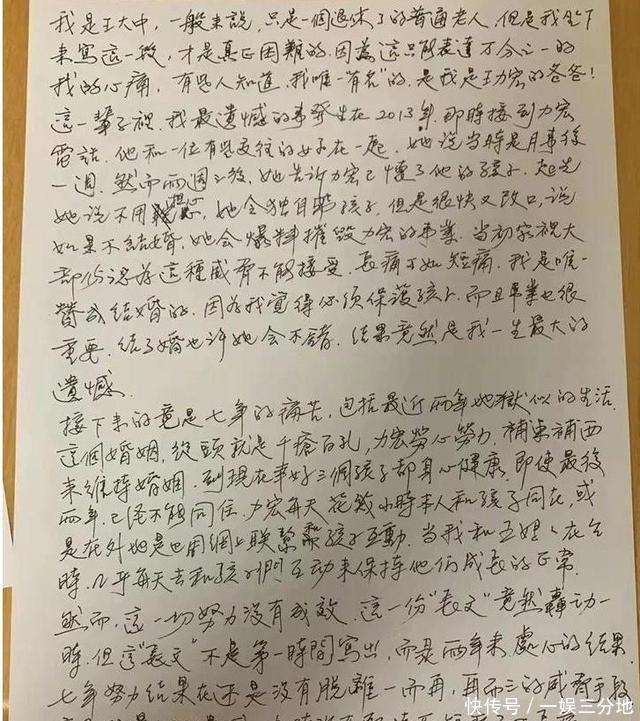 我是王大中，一般来說，只是一個退休了的普通老人，但是我坐下
来寫這一段，才是真正困難的，因為這只能表達万分之一的
我的心痛，有些人知道，我唯一"有名"的，是我是力宏的爸爸！
這一輩子裡，我最遺憾的事發生在2013年，那時接到力宏
電話，他和一位有些交往的女子在一起，她說當時是月事後
一週，然而兩週之後，她告訴力宏已懷了他的孩子，起先
她說不用担心，她会獨自帶孩子，但是很快又改口，說
如果不結婚，她会爆料摧毀力宏的事業，當初家裡大
都份認為這種威脅不能接受，長痛不如短痛，我是唯一
贊成結婚的，因為我覺得必須保護孩子，而且事業也很
重要，結了婚也许她会不錯，結果竟然是我一生最大的
遺憾
接下来的竟是七年的痛苦，包括最近兩年地獄似的生活
這個婚姻，從頭就是千瘡百孔，力宏勞心勞力，補東補西
来維持婚姻，到現在幸好三個孩子都身心健康，即使最後
兩年，已经不能同住，力宏每天花幾小時本人和孩子同在，或
是在外地是也用網上联繫和孩子互動，當我和王媽媽在台
時，几乎每天去和孩子們互动来保持他们成長的正常
然而，這一切努力没有成效，這一份"長文"竟然轟动一
時，但這"長文"不是第一時間寫出，而是兩年来處心的結果
七年努力結果在还是没有脱離一而再，再而三的威脅手段
快传号／一娱三分地